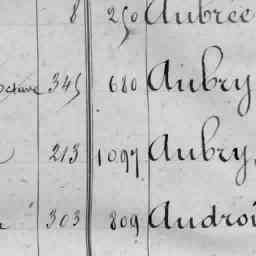 8 250 Aubrée
Octave 345 680 Aubry
213 1097 Aubry,
" 303 809 Audroi